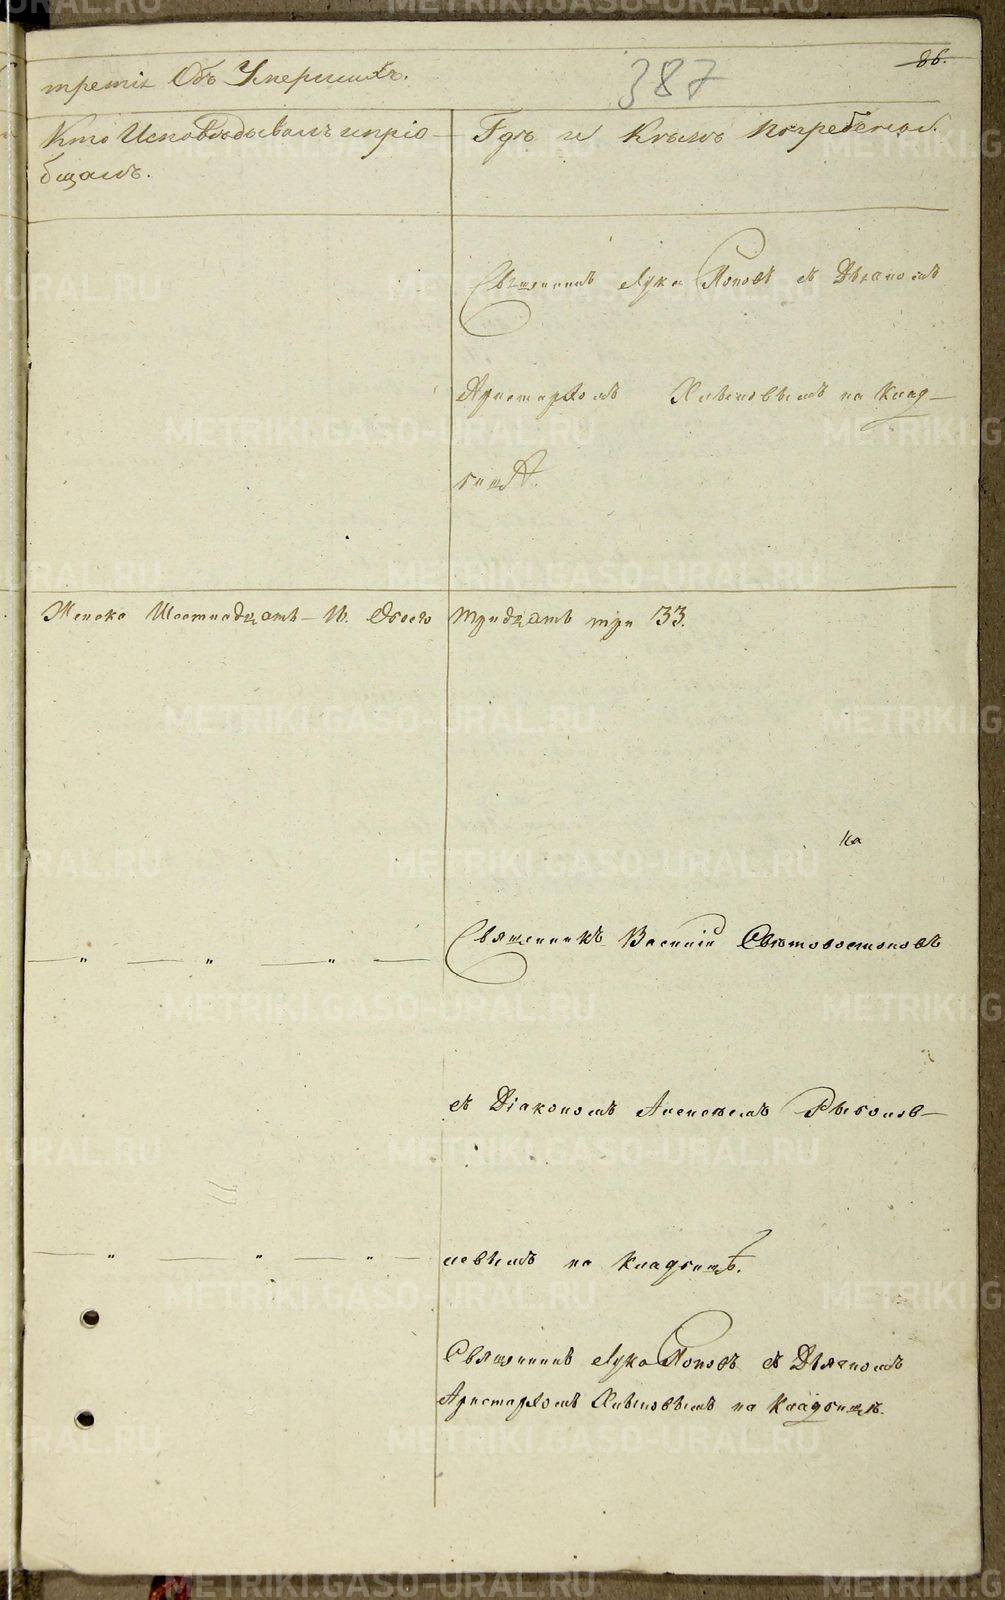 86.
387
третія Объ Умершихъ.
Кто Исповѣдывалъ и пріо-
бщалъ.
Гдѣ и Кѣмъ погребены.
Священникъ Лука Поповъ съ Дьячкомъ
Аристархомъ Хлыновымъ на клад-
бищѣ.
Женска Шестнадцать 16. Обоего
тридцать три 33.
на
Священникъ Василій
съ Діакономъ Алексѣемъ
левымъ на кладбищѣ.
Священникъ Лука Поповъ съ Дьячкомъ
Аристархомъ Хлыновымъ на кладбищѣ.
METRIKI.GASO-URAL.RU